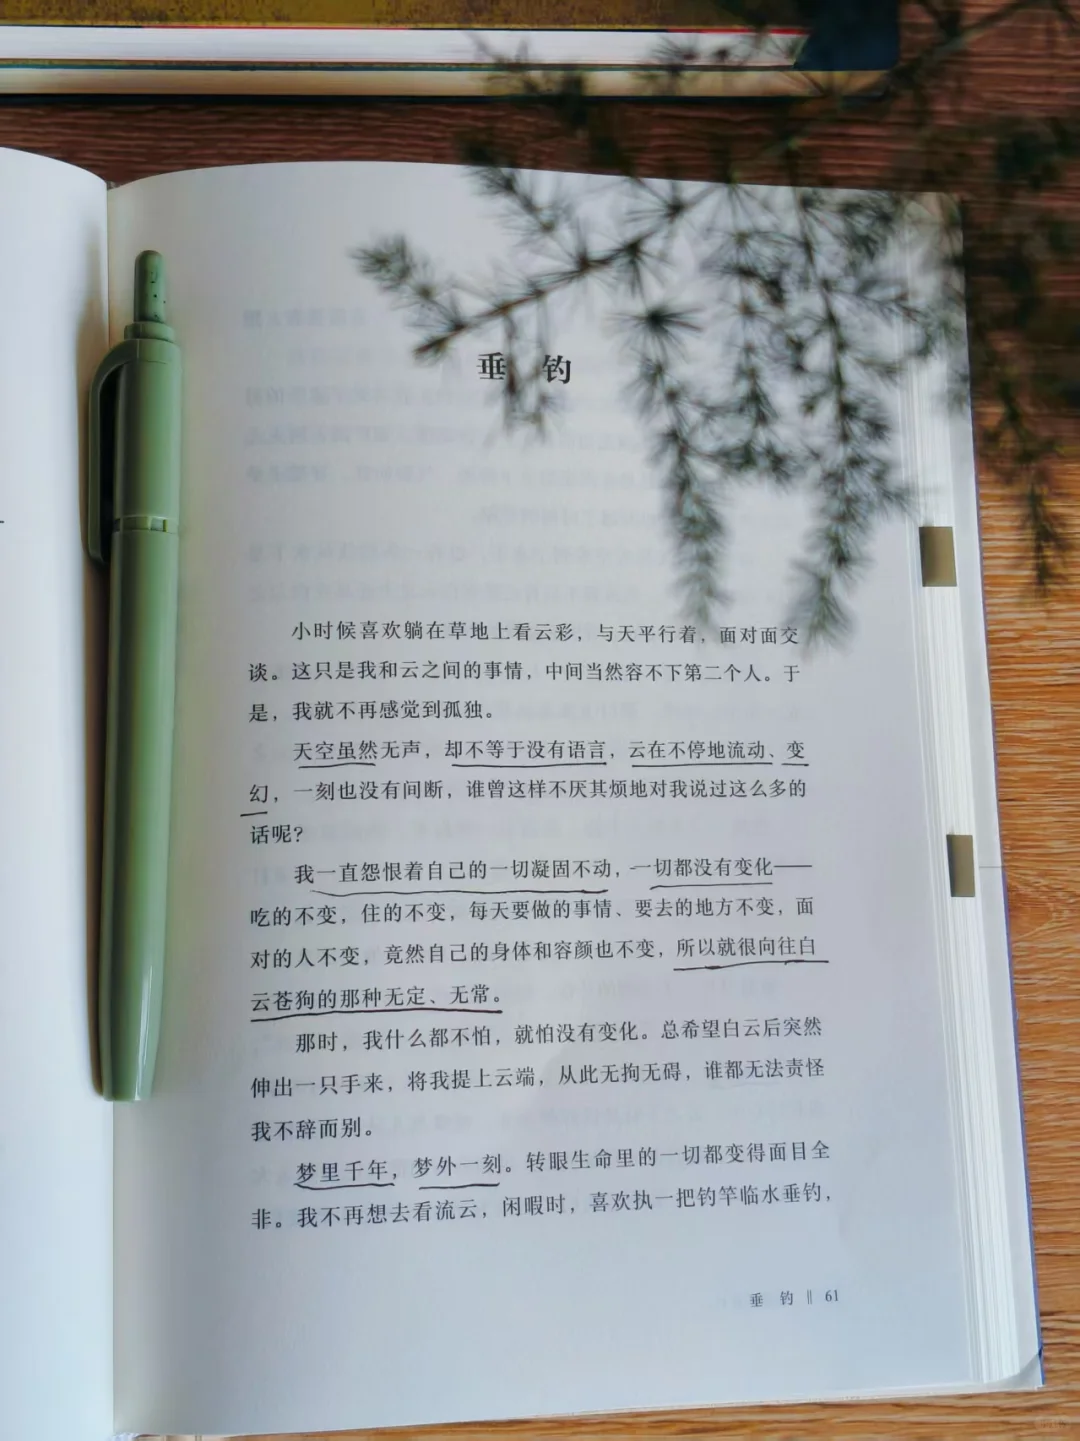 垂 钓
小时候喜欢躺在草地上看云彩，与天平行着，面对面交
谈。这只是我和云之间的事情，中间当然容不下第二个人。于
是，我就不再感觉到孤独。
天空虽然无声，却不等于没有语言，云在不停地流动、变
幻，一刻也没有间断，谁曾这样不厌其烦地对我说过这么多的
话呢？
我一直怨恨着自己的一切凝固不动，一切都没有变化——
吃的不变，住的不变，每天要做的事情、要去的地方不变，面
对的人不变，竟然自己的身体和容颜也不变，所以就很向往白
云苍狗的那种无定、无常。
那时，我什么都不怕，就怕没有变化。总希望白云后突然
伸出一只手来，将我提上云端，从此无拘无碍，谁都无法责怪
我不辞而别。
梦里千年，梦外一刻。转眼生命里的一切都变得面目全
非。我不再想去看流云，闲暇时，喜欢执一把钓竿临水垂钓，
垂 钓 ‖ 61